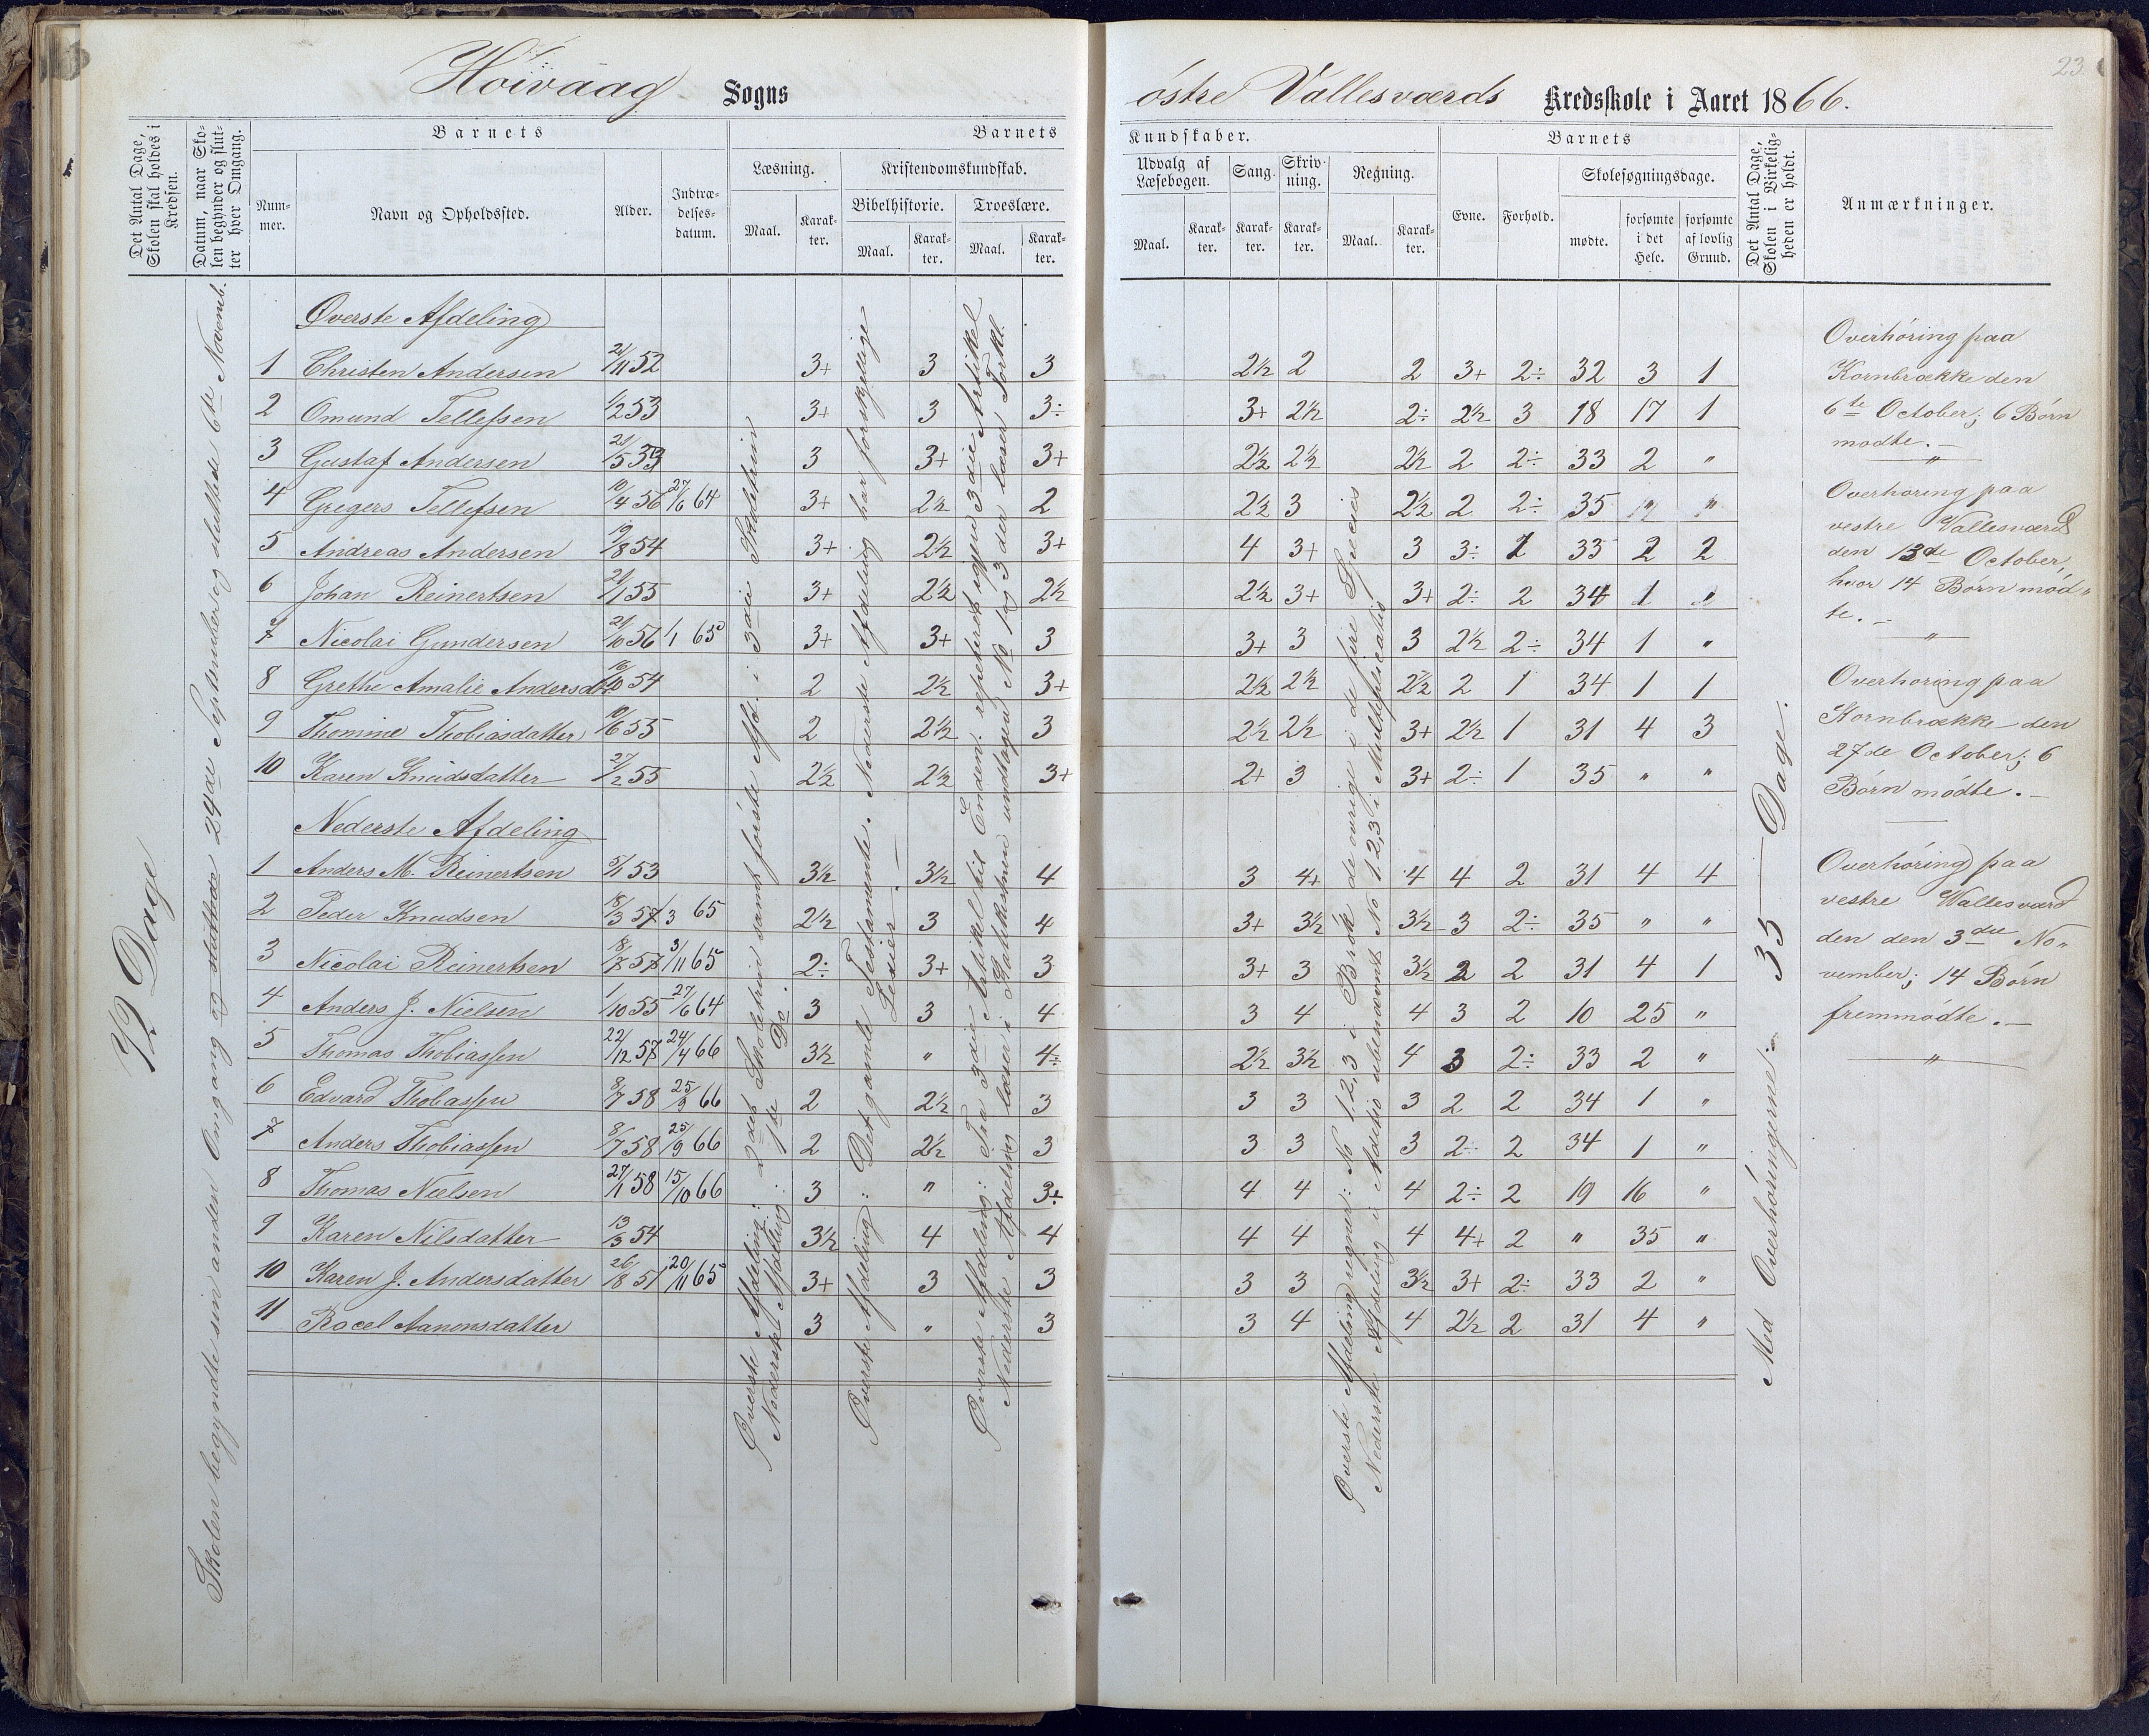 Høivaag Sogns østre Vallesværds Kredsskole i Aaret 1866.
23.
Det Antal Dage, Skolen skal holdes i Kredsen.
Datum, naar Skolen begynder og slutter hver Omgang.
Barnets
Nummer.
Navn og Opholdssted.
Alder.
Indtrædelsesdatum.
Barnets Kundskaber.
Læsning.
Maal.
Karakter.
Kristendomskundskab.
Bibelhistorie.
Maal.
Karakter.
Troeslære.
Maal.
Karakter.
Udvalg af Læsebogen.
Maal.
Karakter.
Sang.
Karakter.
Skrivning.
Karakter.
Regning.
Maal.
Karakter.
Barnets
Evne.
Forhold.
Skolesøgningsdage.
mødte.
forsømte i det Hele.
forsømte af lovlig Grund.
Det Antal Dage, Skolen i Virkeligheden er holdt.
Anmærkninger.
12 Dage
Skolen begyndte sin anden Omgang og sluttede 24de September og sluttede 6te Novemb.
Øverste Afdeling
1 Christen Andersen 21/11 52 3+ 3 3 2½ 2 2 3+ 2÷ 32 3 1
2 Omund Tellefsen 1/2 53 3+ 3 3÷ 3+ 2½ 2÷ 2½ 3 18 17 1
3 Gustaf Andersen 3 3+ 3+ 2½ 2½ 2½ 2 2÷ 33 2 "
4 Gregers Tellefsen 10/4 56 27/6 64 3+ 2½ 2 2½ 3 2½ 2 2÷ 35 " "
5 Andreas Andersen 19/8 54 3+ 2½ 3+ 4 3+ 3 3÷ 1 33 2 2
6 Johan Reinertsen 21/1 55 3+ 2½ 2½ 2½ 3+ 3+ 2÷ 2 34 1 "
7 Nicolai Gundersen 21/10 56 1/1 65 3+ 3+ 3 3+ 3 3 2½ 2÷ 34 1 "
8 Grethe Amalie Andersdtr 16/10 54 2 2½ 3+ 2½ 2½ 2½ 2 1 34 1 1
9 Thomine Thobiasdatter 10/6 55 2 2½ 3 2½ 2½ 3+ 2½ 1 31 4 3
10 Karen Knudsdatter 27/2 55 2½ 2½ 3+ 2+ 3 3+ 2÷ 1 35 " "
Nederste Afdeling
1 Anders M. Reinertsen 5/1 53 3½ 3½ 4 3 4+ 4 4 2 31 4 4
2 Peder Knudsen 18/3 57 1/3 65 2½ 3 4 3+ 3½ 3½ 3 2÷ 35 " "
3 Nicolai Reinertsen 18/7 57 3/11 65 2÷ 3+ 3 3+ 3 3½ 2 2 31 4 1
4 Anders J. Nielsen 1/10 55 27/6 64 3 3 4 3 4 4 3 2 10 25 "
5 Thomas Thobiassen 22/12 57 24/4 66 3½ " 4÷ 2½ 3½ 4 3 2÷ 33 2 "
6 Edvard Thobiassen 8/7 58 25/9 66 2 2½ 3 3 3 3 2 2 34 1 "
7 Anders Thobiassen 8/7 58 25/9 66 2 2½ 3 3 3 3 2÷ 2 34 1 "
8 Thomas Nielsen 27/1 58 15/10 66 3 " 3÷ 4 4 4 2÷ 2 19 16 "
9 Karen Nilsdatter 13/3 54 3½ 4 4 4 4 4 4+ 2 " 35 "
10 Karen J. Andersdatter 26/8 51 20/11 65 3+ 3 3 3 3 3½ 3+ 2÷ 33 2 "
11 Racel Aanonsdatter 3 " 3 3 4 4 2½ 2 31 4 "
Øverste Afdeling: 2det Skoletrin samt første Afd. i 3die Skoletrin
Nederste Afdeling: 1ste Do.
Øverste Afdeling: Det gamle Testamente. Nederste Afdeling har forskjellige
Lexier.
Øverste Afdeling: Fra 3die Artikel til Enden; repeteret igjen 3die Artikel
Nederste Afdeling læser i Katekismen undtagen No 1 og 3 der læser Forkl.
Øverste Afdeling regner: No 1,2,3 i Brøk de øvrige i de fire Species
Nederste Afdeling i Additio ubenævnt No 1,2,3 i Multiplicatio
Med Overhøringerne: 35 Dage.
Overhøring paa
Kornbrække den
6te October; 6 Børn
mødte.
Overhøring paa
vestre Vallesværd
den 13de October,
hvor 14 Børn mød-
te.
Overhøring paa
Kornbrække den
27de October; 6
Børn mødte.
Overhøring paa
vestre Vallesværd
den den 3die No-
vember; 14 Børn
fremmødte.